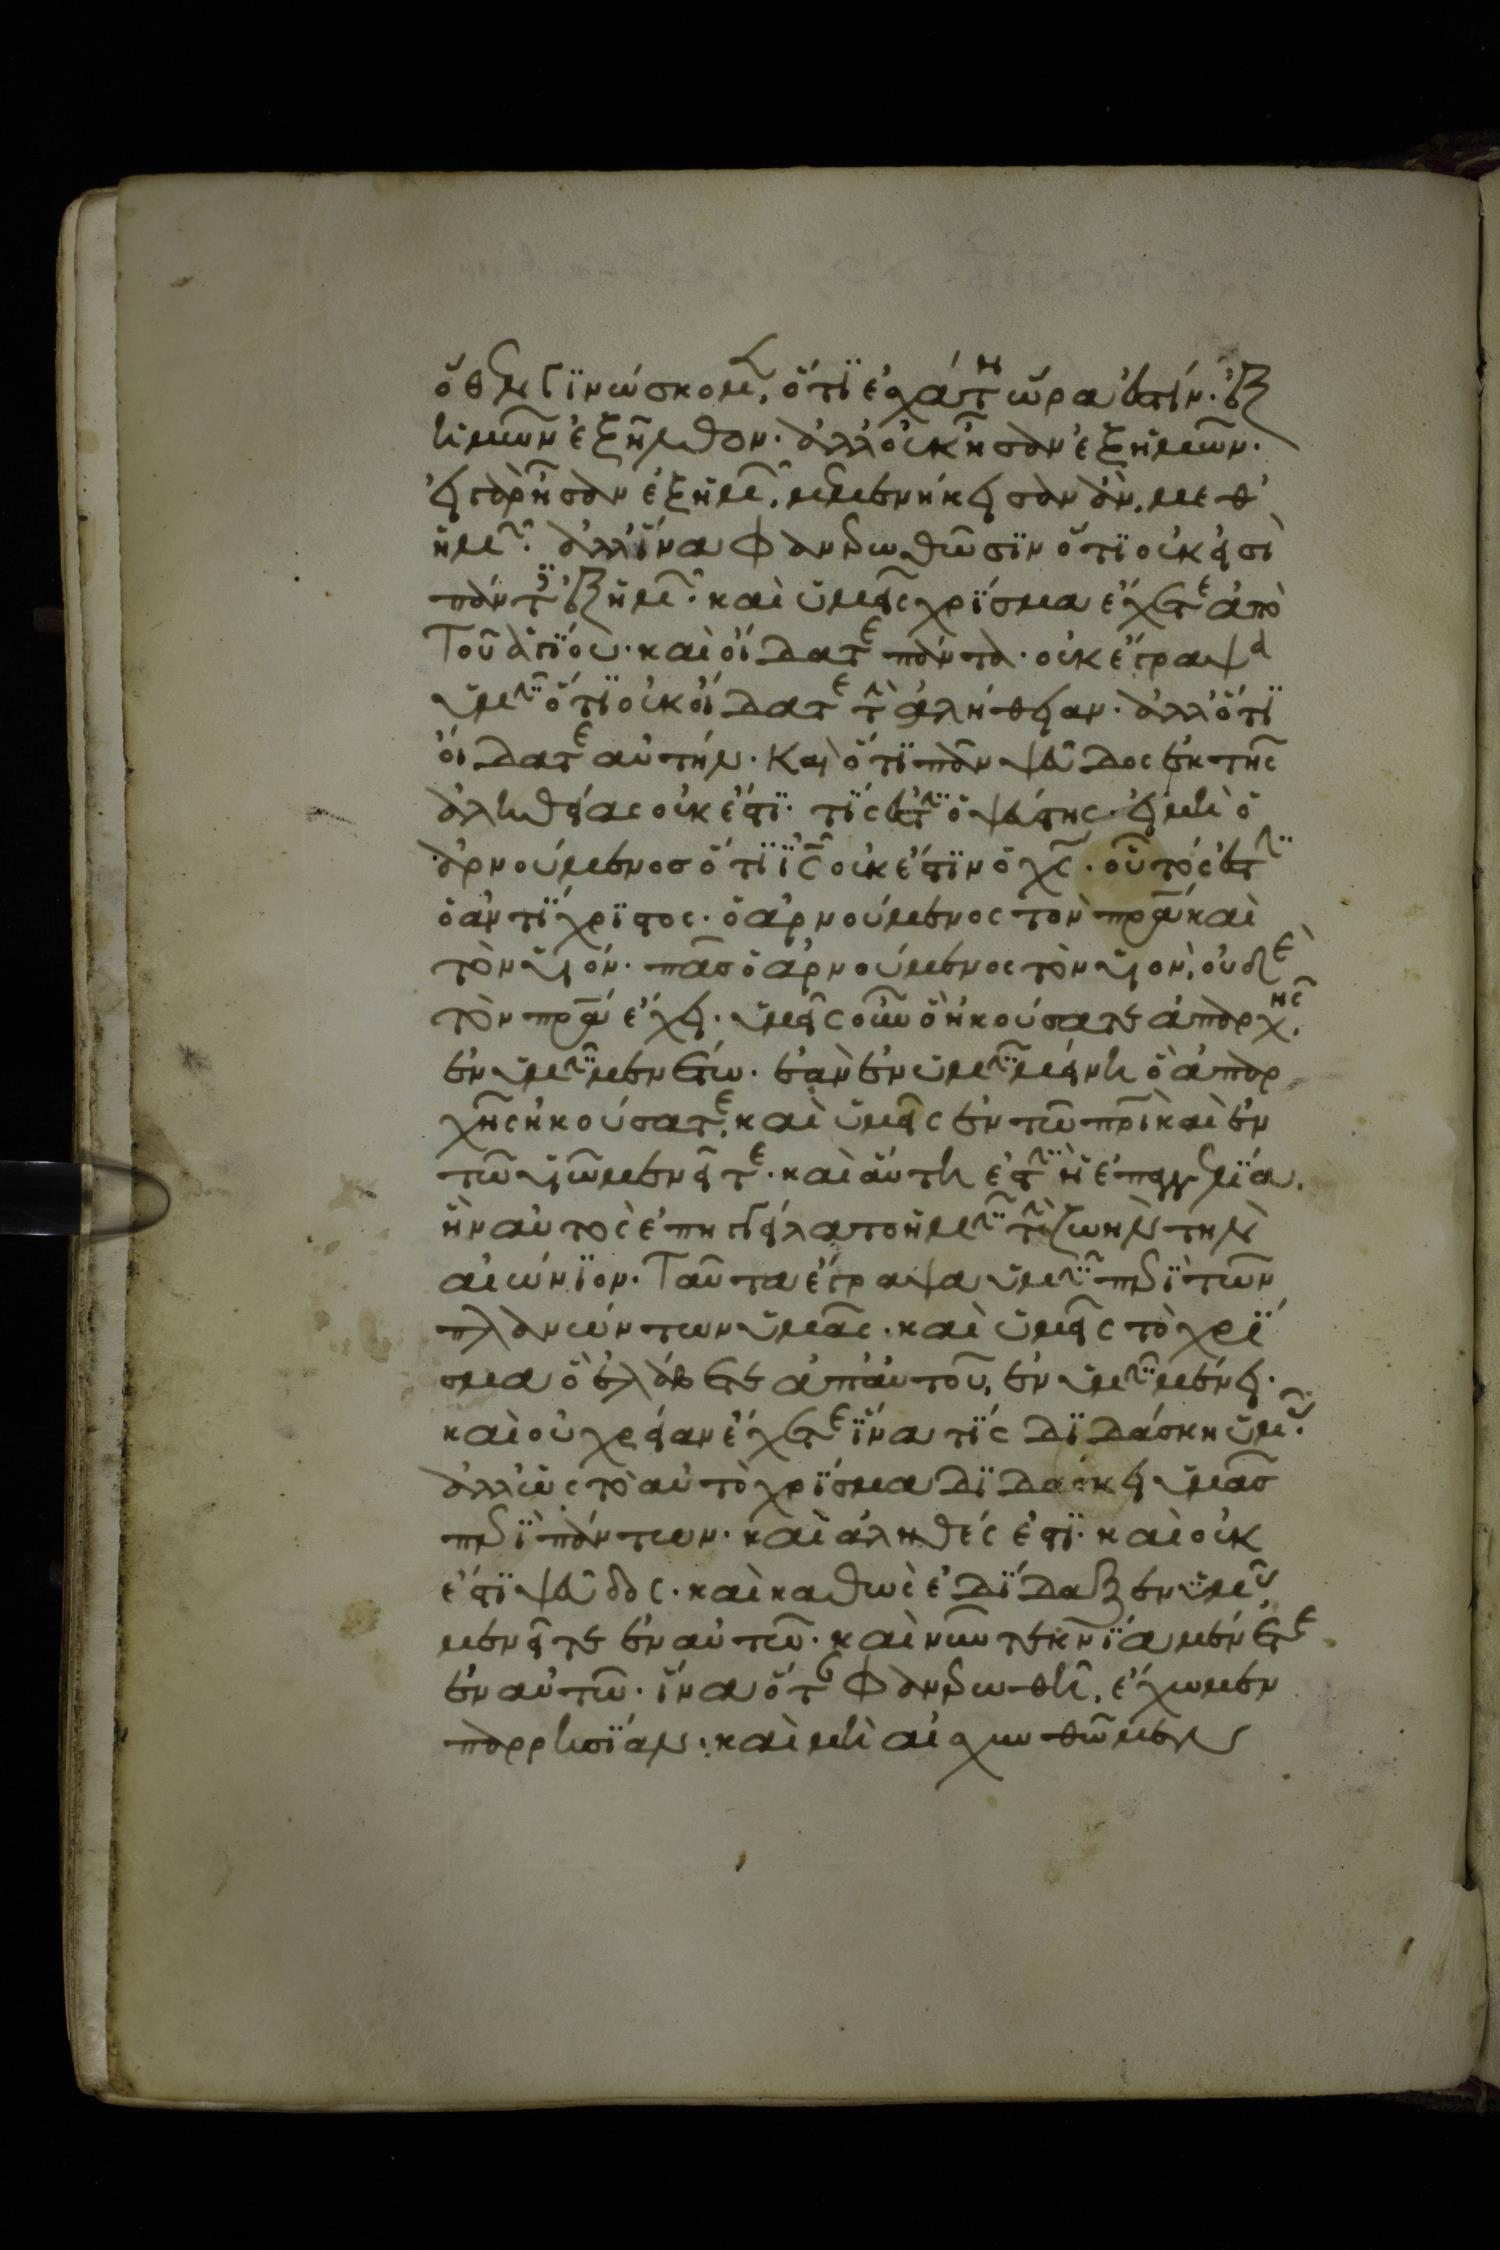 ὅθεν γϊνώσκομεν, ὅτϊ ἐσχάτη ὥρα ἐστίν. ἐξ
ἡμῶν ἐξῆλθον. ἀλλ οὐκ ἦσαν ἐξ ἡμῶν.
εἰ γὰρ ἦσαν ἐξ ἡμῶν, μεμενήκεισαν ἂν, μεθ
ἡμῶν. ἀλλ ἵνα φανερωθῶσϊν ὅτϊ οὐκ εἰσὶ
πάντες ἐξ ἡμῶν. καὶ ὑμεῖς χρίσμα ἔχετε ἀπὸ
Τοῦ ἁγίου. καὶ οἴδατε πάντα. οὐκ ἔγραψα
ὑμῖν ὅτϊ οὐκ οἴδατε τὴν ἀλήθειαν. ἀλλ ὅτϊ
οἴδατε αὐτήν. Καὶ ὅτϊ πᾶν ψεῦδος ἐκ τῆς
ἀληθείας οὐκ ἔστϊ. τίς ἐστϊν ὁ ψεύστης. εἰ μὴ ὁ
ἀρνούμενοσ ὅτϊ ϊς οὐκ ἔστϊν ὁ χς. οὗτός ἐστϊν
ὁ ἀντίχρϊστος. ὁ ἀρνούμενος τὸν πρα καὶ
τὸν υἱόν. πᾶσ ὁ ἀρνούμενος τὸν υἱὸν, οὐδὲ
τὸν πρα ἔχει. ὑμεῖς οὖν ὃ ἠκούσατε ἀπ αρχῆς,
ἐν ὑμῖν μενέτω. ἐὰν ἐν ὑμῖν μείνη ὃ ἀπ αρ
χῆς ἠκούσατε, καὶ ὑμεῖς ἐν τῶ πρϊ καὶ ἐν
τῶ υἱῶ μενεῖτε. καὶ αὕτη ἐστϊν ἡ ἐπαγγελία,
ἣν αὐτὸς ἐπηγγείλατο ἡμῖν τὴν ζωὴν τὴν
αἰώνϊον. Ταῦτα ἔγραψα ὑμῖν περὶ τῶν
πλανώντων ὑμᾶς. καὶ ὑμεῖς τὸ χρί
σμα ὃ ἐλάβετε ἀπ αὐτοῦ, ἐν ὑμῖν μένει.
καὶ οὐ χρείαν ἔχετε ἵνα τὶς δϊδάσκη ὑμᾶς.
ἀλλ ὡς τὸ αὐτὸ χρίσμα δϊδάσκει ὑμᾶσ
περὶ πάντων. καὶ ἀληθές ἐστϊ. καὶ οὐκ
ἔστϊ ψεῦδος. καὶ καθὼς ἐδίδαξεν ὑμᾶς,
μενεῖτε ἐν αὐτῶ. καὶ νῦν τεκνία μένετε
ἐν αὐτῶ. ἵνα ὅταν φανερωθῆ, ἔχωμεν
παρρησίαν. καὶ μὴ αἰσχυνθῶμεν